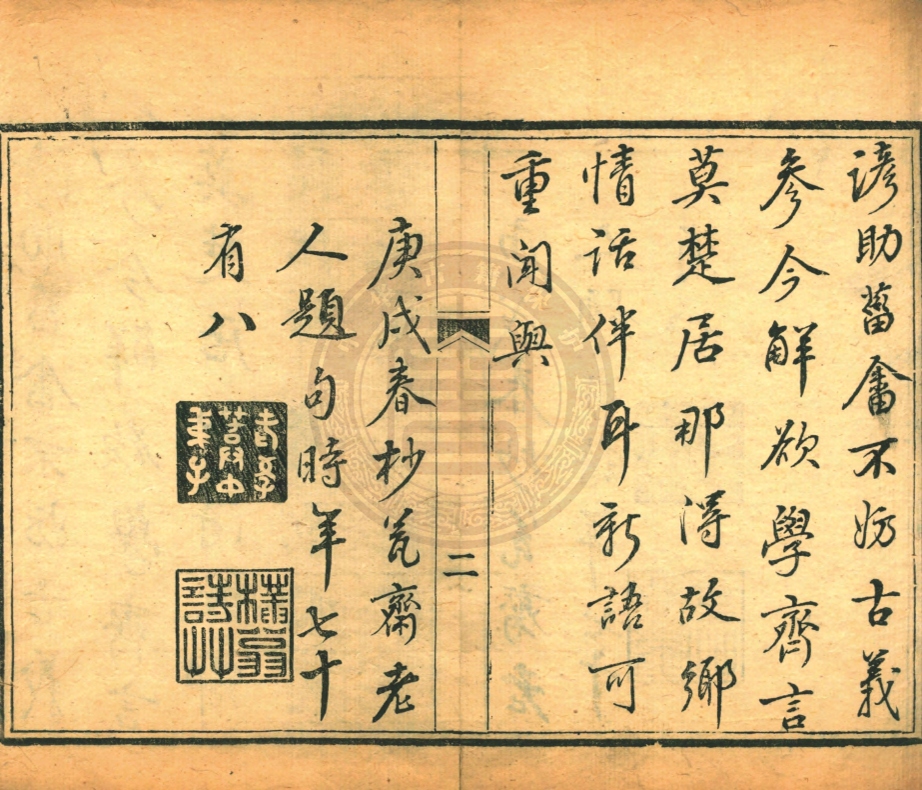 諺助菑畬不妨古義
參今解欲學齊言
莫楚居那得故鄉
情話伴耳新語可
重聞與
二
庚戌春杪瓮齋老
人題句時年七十
有八